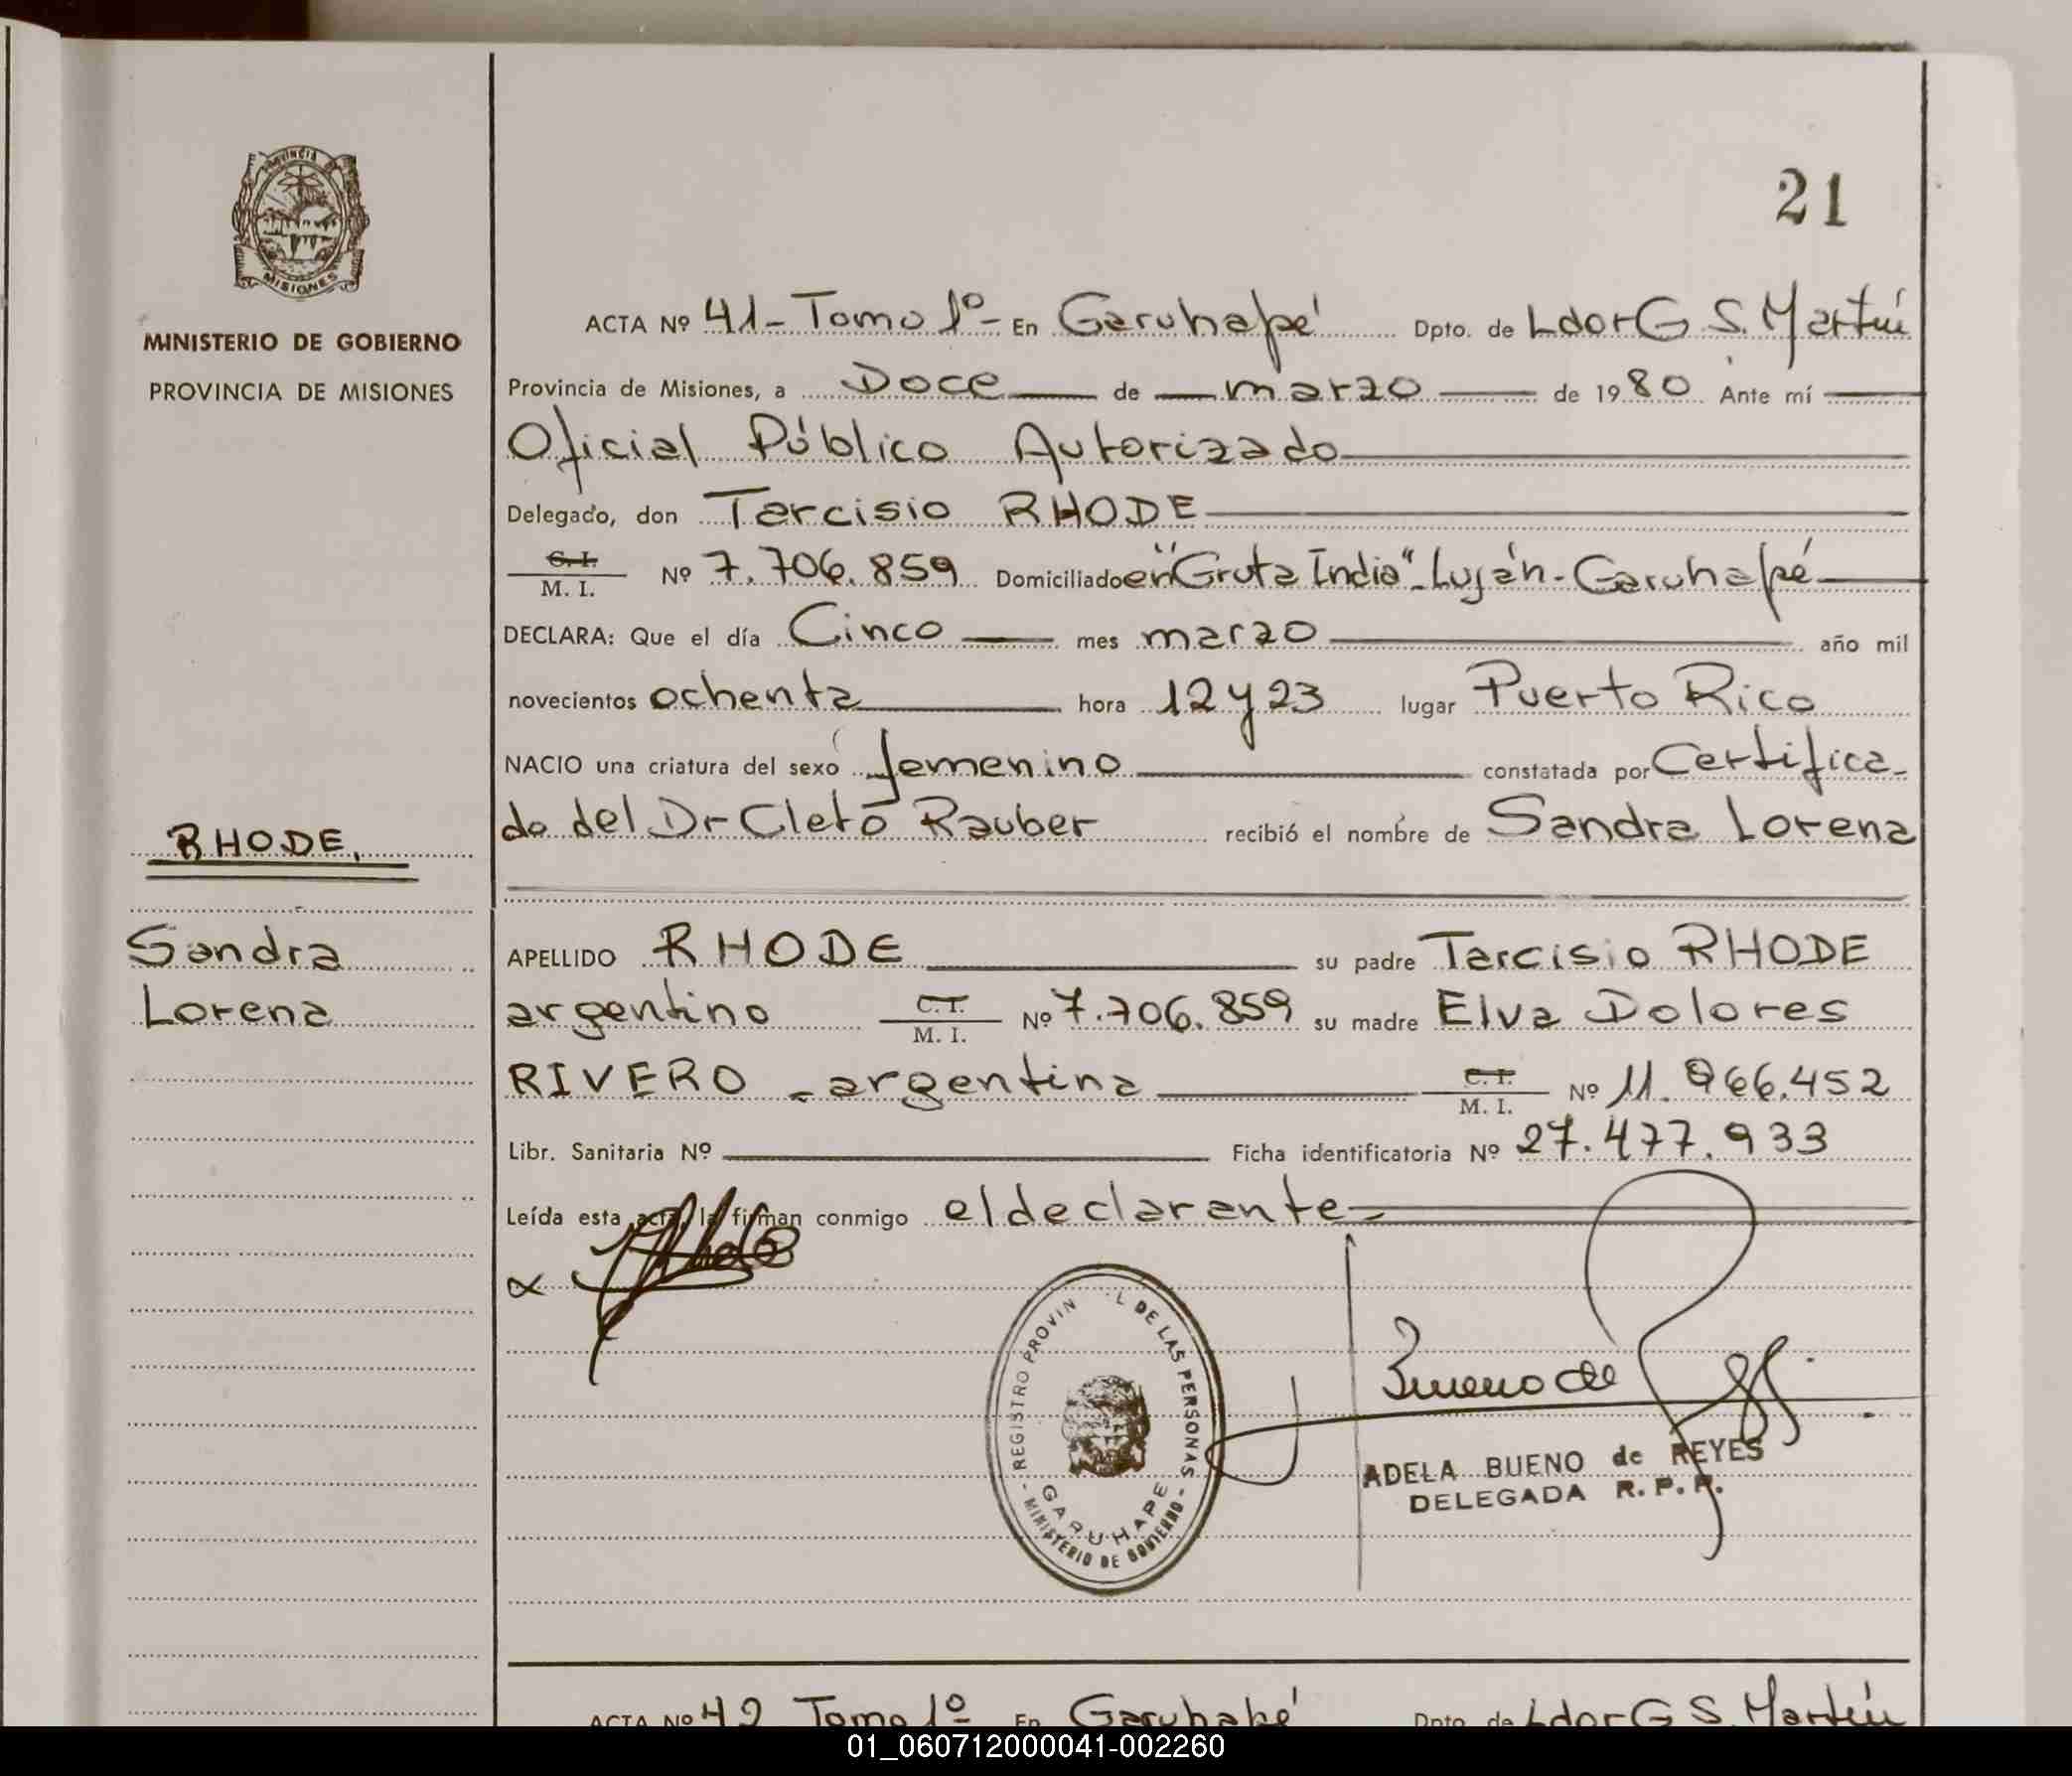 21
PROVINCIA
MISIONES
MINISTERIO DE GOBIERNO
PROVINCIA DE MISIONES
RHODE,
Sandra
Lorena
ACTA Nº 41- Tomo 1º- En Garuhapé Dpto. de Ldor G. S. Martín
Provincia de Misiones, a Doce de marzo de 1980 Ante mí
Oficial Público Autorizado
Delegado, don Tarcisio RHODE
C. I.
M. I. Nº 7.706.859 Domiciliado en "Gruta India"-Luján-Garuhapé
DECLARA: Que el día Cinco mes marzo año mil
novecientos ochenta hora 12 y 23 lugar Puerto Rico
NACIO una criatura del sexo femenino constatada por Certifica-
do del Dr Cleto Rauber recibió el nombre de Sandra Lorena
APELLIDO RHODE su padre Tarcisio RHODE
argentino C. I. M. I. Nº 7.706.859 su madre Elva Dolores
RIVERO - argentina C. I. M. I. Nº 11.966.452
Libr. Sanitaria Nº Ficha identificatoria Nº 27.477.933
Leída esta acta, la firman conmigo el declarante-
REGISTRO PROVIN L DE LAS PERSONAS
GARUHAPE
- MINISTERIO DE GOBIERNO -
Bueno de
ADELA BUENO de REYES
DELEGADA R. P. P.
ACTA Nº 42 Tomo 1º En Garuhapé Dpto. de Ldor G S. Martín
01_060712000041-002260